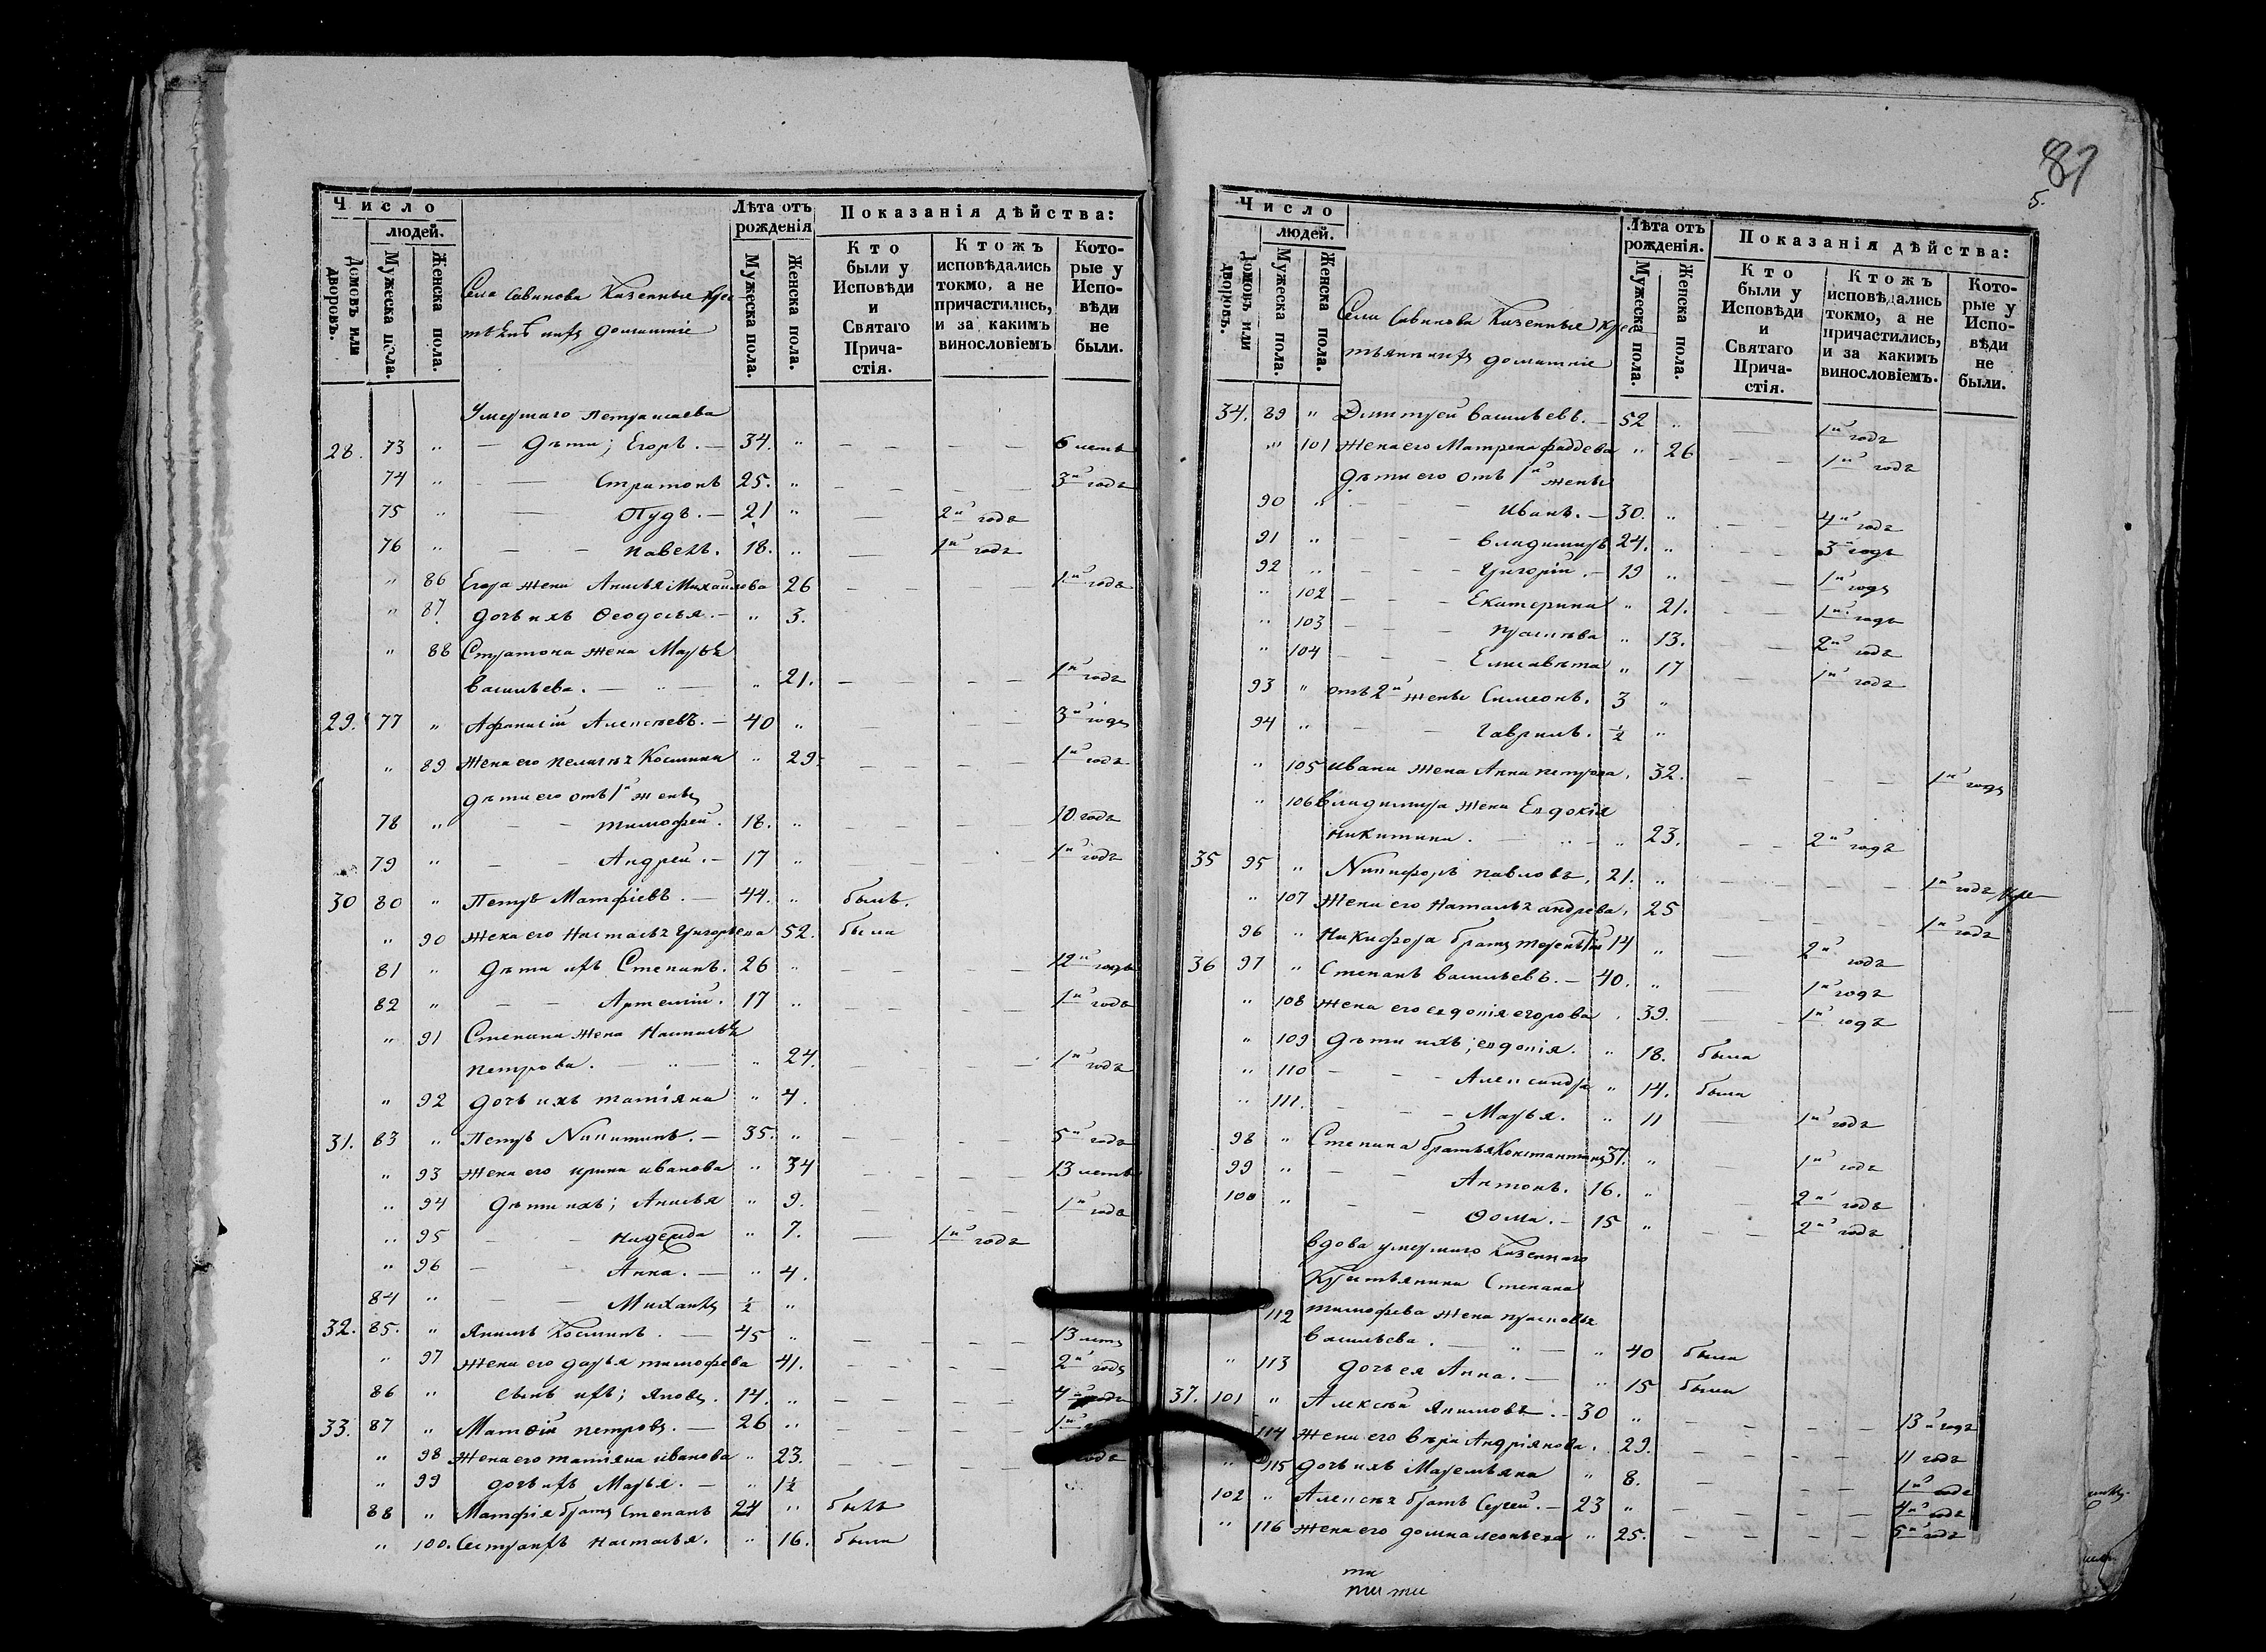 81
5.
Число
людей.
Домовъ или дворовъ.
Мужеска пола.
Женска пола.
Села Савинова Казенные Крес
тьянѣ ихъ домашнiе
Лѣта отъ рожденія
Мужеска пола.
Женска пола.
Показанія дѣйства:
Кто были у Исповѣди и Святаго Прича-стія.
Ктожъ исповѣдались токмо, а не причастились, и за какимъ винословіемъ
Кото-рые у Испо-вѣди не были.
Умершаго
28. 73 " — Дѣти; Егоръ. — 34. " 6 летъ
74 " — Стратонъ 25. " 3й годъ
75 " — Пудъ. — 21 " 2й годъ
76 " — — Павелъ. 18. " 1й годъ
" 86 Егора жена Акилья Михайлова 26 1й годъ
" 87. дочь ихъ Ѳеодосья. — " 3.
" 88 Стратона жена Марья
Васильева. — " — " 21. 1й годъ
29. 77 " Афанасiй Алексѣевъ. — 40 " 3й годъ
" 89 жена его Пелагѣя Космина " 29. 1й годъ
дѣти его отъ 1й жены
78 " — — Тимофей. 18. " 10 годъ
79 " — — Андрей. — 17 " 1й годъ
30 80 " Петръ Матфiевъ. — 44. " былъ.
" 90 жена его Настасья Григорьева 52. была
81 " дѣти ихъ Степанъ. 26 " 12й годъ
82 " — — Артемiй. 17 " 1й годъ
" 91 Степана жена Настасья
Петрова. — " — " 24. 1й годъ
" 92 дочь ихъ Татiяна " 4.
31. 83 " Петръ Никитинъ. — 35. " 5й годъ
" 93 жена его Ирина Иванова " 34 13 летъ
" 94 дѣти ихъ; Акилья " 9. 1й годъ
" 95 — — Надежда " 7. 1й годъ
" 96 — — Анна. — " 4.
84 " — — Михаилъ ½ "
32. 85. " Якимъ Косминъ. — 45 " 13 летъ
" 97 жена его Дарья Тимофева 41. 2й годъ
86 " сынъ ихъ; Яковъ. 14. " 4й годъ
33. 87 " Матѳiй Петровъ. — 26 "
" 98 жена его Татiяна Иванова " 23. годъ
" 99 дочь ихъ Марья. — " 1½
88 " Матфiя братъ Степанъ 24 " былъ
" 100. Сестра ихъ Настасья. " 16. была
Число
людей.
Домовъ или дворовъ.
Мужеска пола.
Женска пола.
Села Савинова Казенные Крес
тьянѣ ихъ домашнiе
Лѣта отъ рожденія.
Мужеска пола.
Женска пола.
Показанія дѣйства:
Кто были у Исповѣди и Святаго Прича-стія.
Ктожъ исповѣдались токмо, а не причастились, и за какимъ винословіемъ.
Кото-рые у Испо-вѣди не были.
34. 89 " Димитрей Васильевъ. — 52 " 1й годъ
" 101 жена его Матрена Фаддева " 26 1й годъ
дѣти его отъ 1й жены
90 " — — Иванъ. — 30. " 4й годъ
91 " — — Владимиръ 24. " 3й годъ
92 " — — Григорiй. — 19 " 1й годъ
" 102 — — Екатерина " 21. 1й годъ
" 103 — — " 13. 2й годъ
" 104 — — Елисавета " 17 1й годъ
93 " отъ 2й жены Симеонъ. 3 "
94 " — — Гаврилъ. ½ "
" 105 Ивана жена Анна Петрова. 32. 1й годъ
" 106 Владимира жена Евдокiя
Никитина. — " — " 23. 2й годъ
35 95 " Никифоръ Павловъ. 21. " 1й годъ
" 107 жена его Наталья Андрева. 25 1й годъ
96 " Никифора братъ 14 " 2й годъ
36 97 " Степанъ Васильевъ. — 40. " 1й годъ
" 108 жена его Евдокiя Егорова . 39. 1й годъ
" 109 дѣти ихъ; Евдокiя. " 18. была
" 110 — — Александра " 14. была
" 111. — — Марья. " 11 1й годъ
98 " Степана братья Константинъ 37. " 1й годъ
99 " — — Антонъ. 16. " 2й годъ
100 " — — Ѳома. — 15 " 2й годъ
вдова умершаго Казеннаго
Крестьянина Степана
112 Тимофева жена Прасковья
Васильева. — " — " 40 была
" 113 дочь ея Анна. — " 15 была
37. 101 " Алексѣй Якимовъ. — 30 " 13й годъ
114 жена его Вѣра Андрiянова. 29. 11 годъ
" 115 дочь ихъ Маремьяна " 8. 1й годъ
102 " Алексѣя братъ Сергей. — 23 " 4й годъ
" 116 жена его Домна Леонтьева " 25. 5й годъ